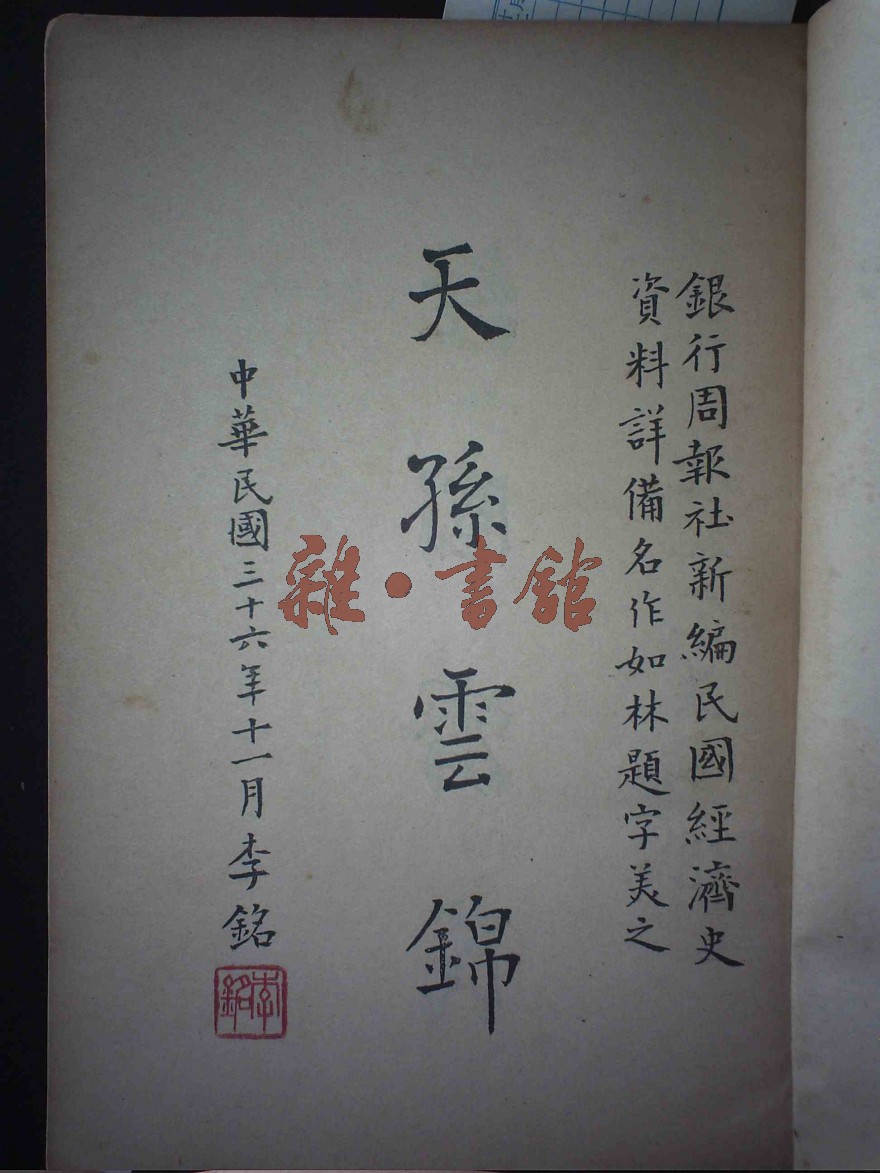 銀行周報社新編民國經濟史
資料詳備名作如林題字美之
天孫雲錦
中華民國三十六年十一月李銘
李銘
雜·書館